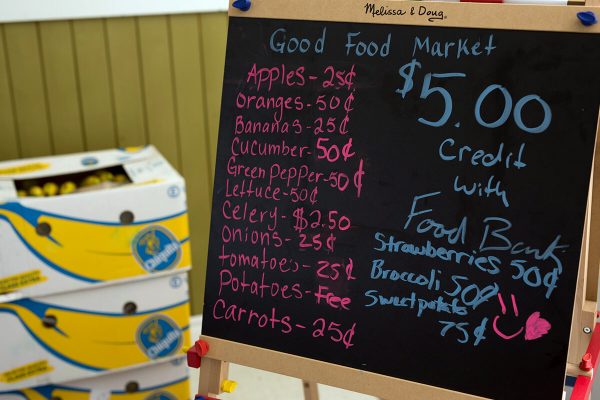 Melissa & Doug
Good Food Market
Apples - 25¢
Oranges - 50¢
Bananas - 25¢
Cucumber - 50¢
Green Pepper - 50¢
Lettuce - 50¢
Celery - $2.50
Onions - 25¢
tomatoes - 25¢
Potatoes - Free
Carrots - 25¢
$5.00
Credit
with
Food Bank
Strawberries 50¢
Broccoli 50¢
Sweet potato
75¢
Chiquita
Chiquita